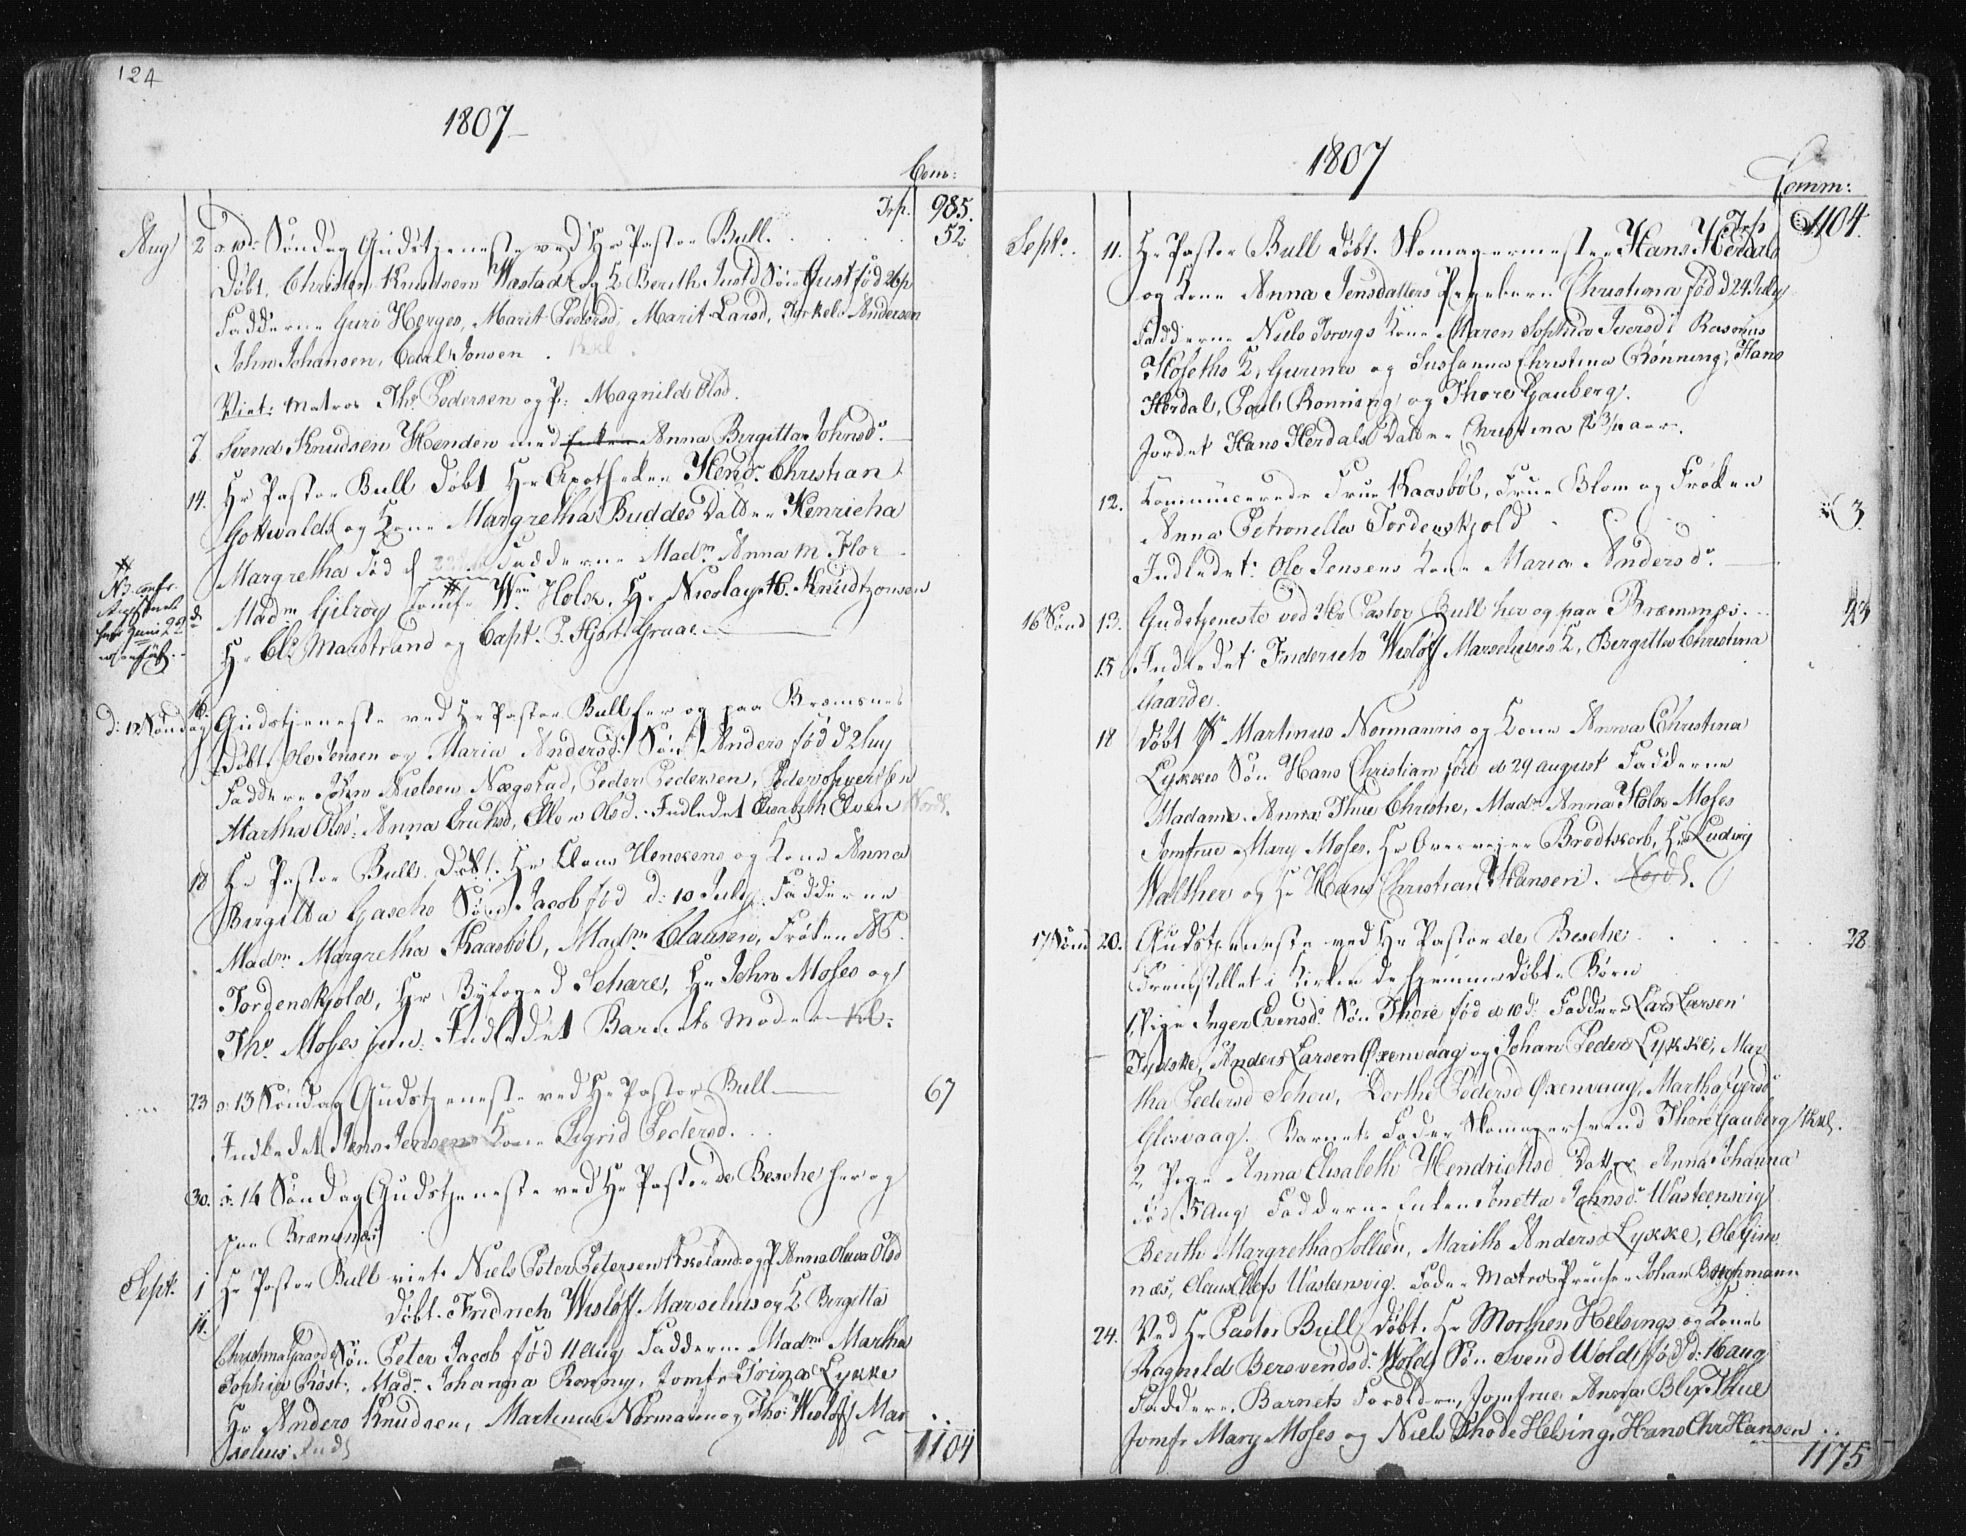 124
1807
Com:
Trsp. 985.
Aug 2 10de Søndag Gudstjeneste ved Hr Pastor Bull. 52.
Døbt. Christen Knudsen Wastad og K Berith Justd Søn Just fød 26
Fadderne Guri Herges, Marit Pedersd, Marit Larsd, Torkel Andersen
John Johansen, Carl Jonsen.
Viet: Matros Ths. Pedersen og P: Magnild Olsd.
7. Svend Knudsen Henden med Enken Anna Birgitta Johnsd.
14. Hr Pastor Bull Døbt Hr Apotheker Hend. Christian
Gottwaldt og Kone Margretha Buddes Datter Henricha
Margretha Fød d Fadderne Madm Anna M. Flor
Madm Gilroy Jomfr W. Holck, Hr Nicolay H. Knudtzonsen
Hr Cl. Marstrand og Capt. P. Hjort Graae.
NB
Juni
d: 12 Søndag 16. Gudstjeneste ved Hr Pastor Bull her og paa Bremsnes
Døbt. Ole Jensen og Maria Andersd: Søn Anders fød d 2
Faddere John Nielsen Nægstad, Peder Pedersen, Peder Syvertsen
Martha Olsd: Anna Cruthsd, Ellen Olsd. Indledet Elisabeth Elven
18 Hr Pastor Bull. Døbt. Hr Klaus Henckens og Kone Anna
Birgitta Gaschs Søn Jacob fød d: 10 July. Fadderne
Madm Margretha Kaasbøl, Madm Clausen, Frøken
Tordenskjold, Hr Byfoged Schare, Hr John Moses og
Ths. Moses jun: Indledet Barnets Moder
23 13 Søndag Gudstjeneste ved Hr Pastor Bull 67
Indledet Jens Jensens Kone Sigrid Pedersd.
30. 14 Søndag Gudstjeneste ved Hr Pastor de Besche her og
paa Bremsnes
Sept. 1 Hr Pastor Bull viet Niels Peter Petersen og P Anna Olava Olsd
11. Døbt. Fridrich Wisløff Marselius og K Birgitta
Christina Gaardes Søn Peter Jacob fød 11 Aug Fadderne Madm Martha
Sophia Røst, Mad. Johanna Ronny, Jomfr Trina Lykke
Hr Anders Knudsen, Martinus Normann og Ths: Wisløff Mar
selius Indl
1104
1807
Comm:
Trsp 1104.
Septr. 11. Hr Pastor Bull Døbt. Skomagermester Hans Herdals
og Kone Anna Jensdatters Pigebarn Christina fød d 24 July
Fadderne Niels Torvigs Kone Maren Sophia Iversd Rasmus
Hoseths K, Gurina og Sussanna Christina Rønning, Hans
Herdal, Poul Ronning og Thore Gauberg.
Jordet Hans Herdals Datter Christina
12. Communicerede Frue Kaasbøl, Frue Blom og Frøken
Anna Petronella Tordenskjold 3
Indledet: Ole Jensens Kone Maria Andersd.
16 Sønd 13. Gudstjeneste ved Hr Pastor Bull her og paa Bræmsnæs. 43
15 Indledet Friderich Wisløff Marselius K, Birgitta Christina
Gaarde.
18 Døbt Martinus Normanns og Kone Anna Christina
Lykkes Søn Hans Christian fød d 29 august Fadderne
Madame Anna Thue Christie, Madm Anna Holck Moses
Jomfrue Mary Moses, Hr Overveyer Brodtkorb, Hr Ludvig
Walther og Hr Hans Christian Hansen.
17 Sønd 20. Gudstjeneste ved Hr Pastor de Besche 28
Fremstillet i Kirken de hjemmedøbte Børn
1, Pige Inger Evensd: Søn Thore fød d 10d: Faddere Lars Larsen
Tydske, Anders Larsen Øxenvaag og Johan Peder Lykke, Mar
tha Pedersd Schou, Dorthe Pedersd Øxenvaag, Martha
Glosvaag. Barnets Fader Skomagersvend Thore Gauberg
2 Pige Anna Elisabeth Hendrichsd Datter Anna Johanna
fød 15 Aug Fadderne Enken Jonetta Johnsd. Wasteensvig
Berith Margretha Sollien, Marith Andersd Lykke, Ole Gim
næs, Claus Ellefs Wasteensvig. Fader Matros Johan Berghmann
24. Ved Hr Pastor Bull Døbt. Hr Morthen Helsings og Kones
Ragnild Bersvendsd: Wold Søn Svend Wold fød d: 16 aug
Faddere, Barnets Forældre, Jomfrue Anna Blix Thue
Jomfr Mary Moses og Niels Thode Helsing, Hans Chr Hansen
1175